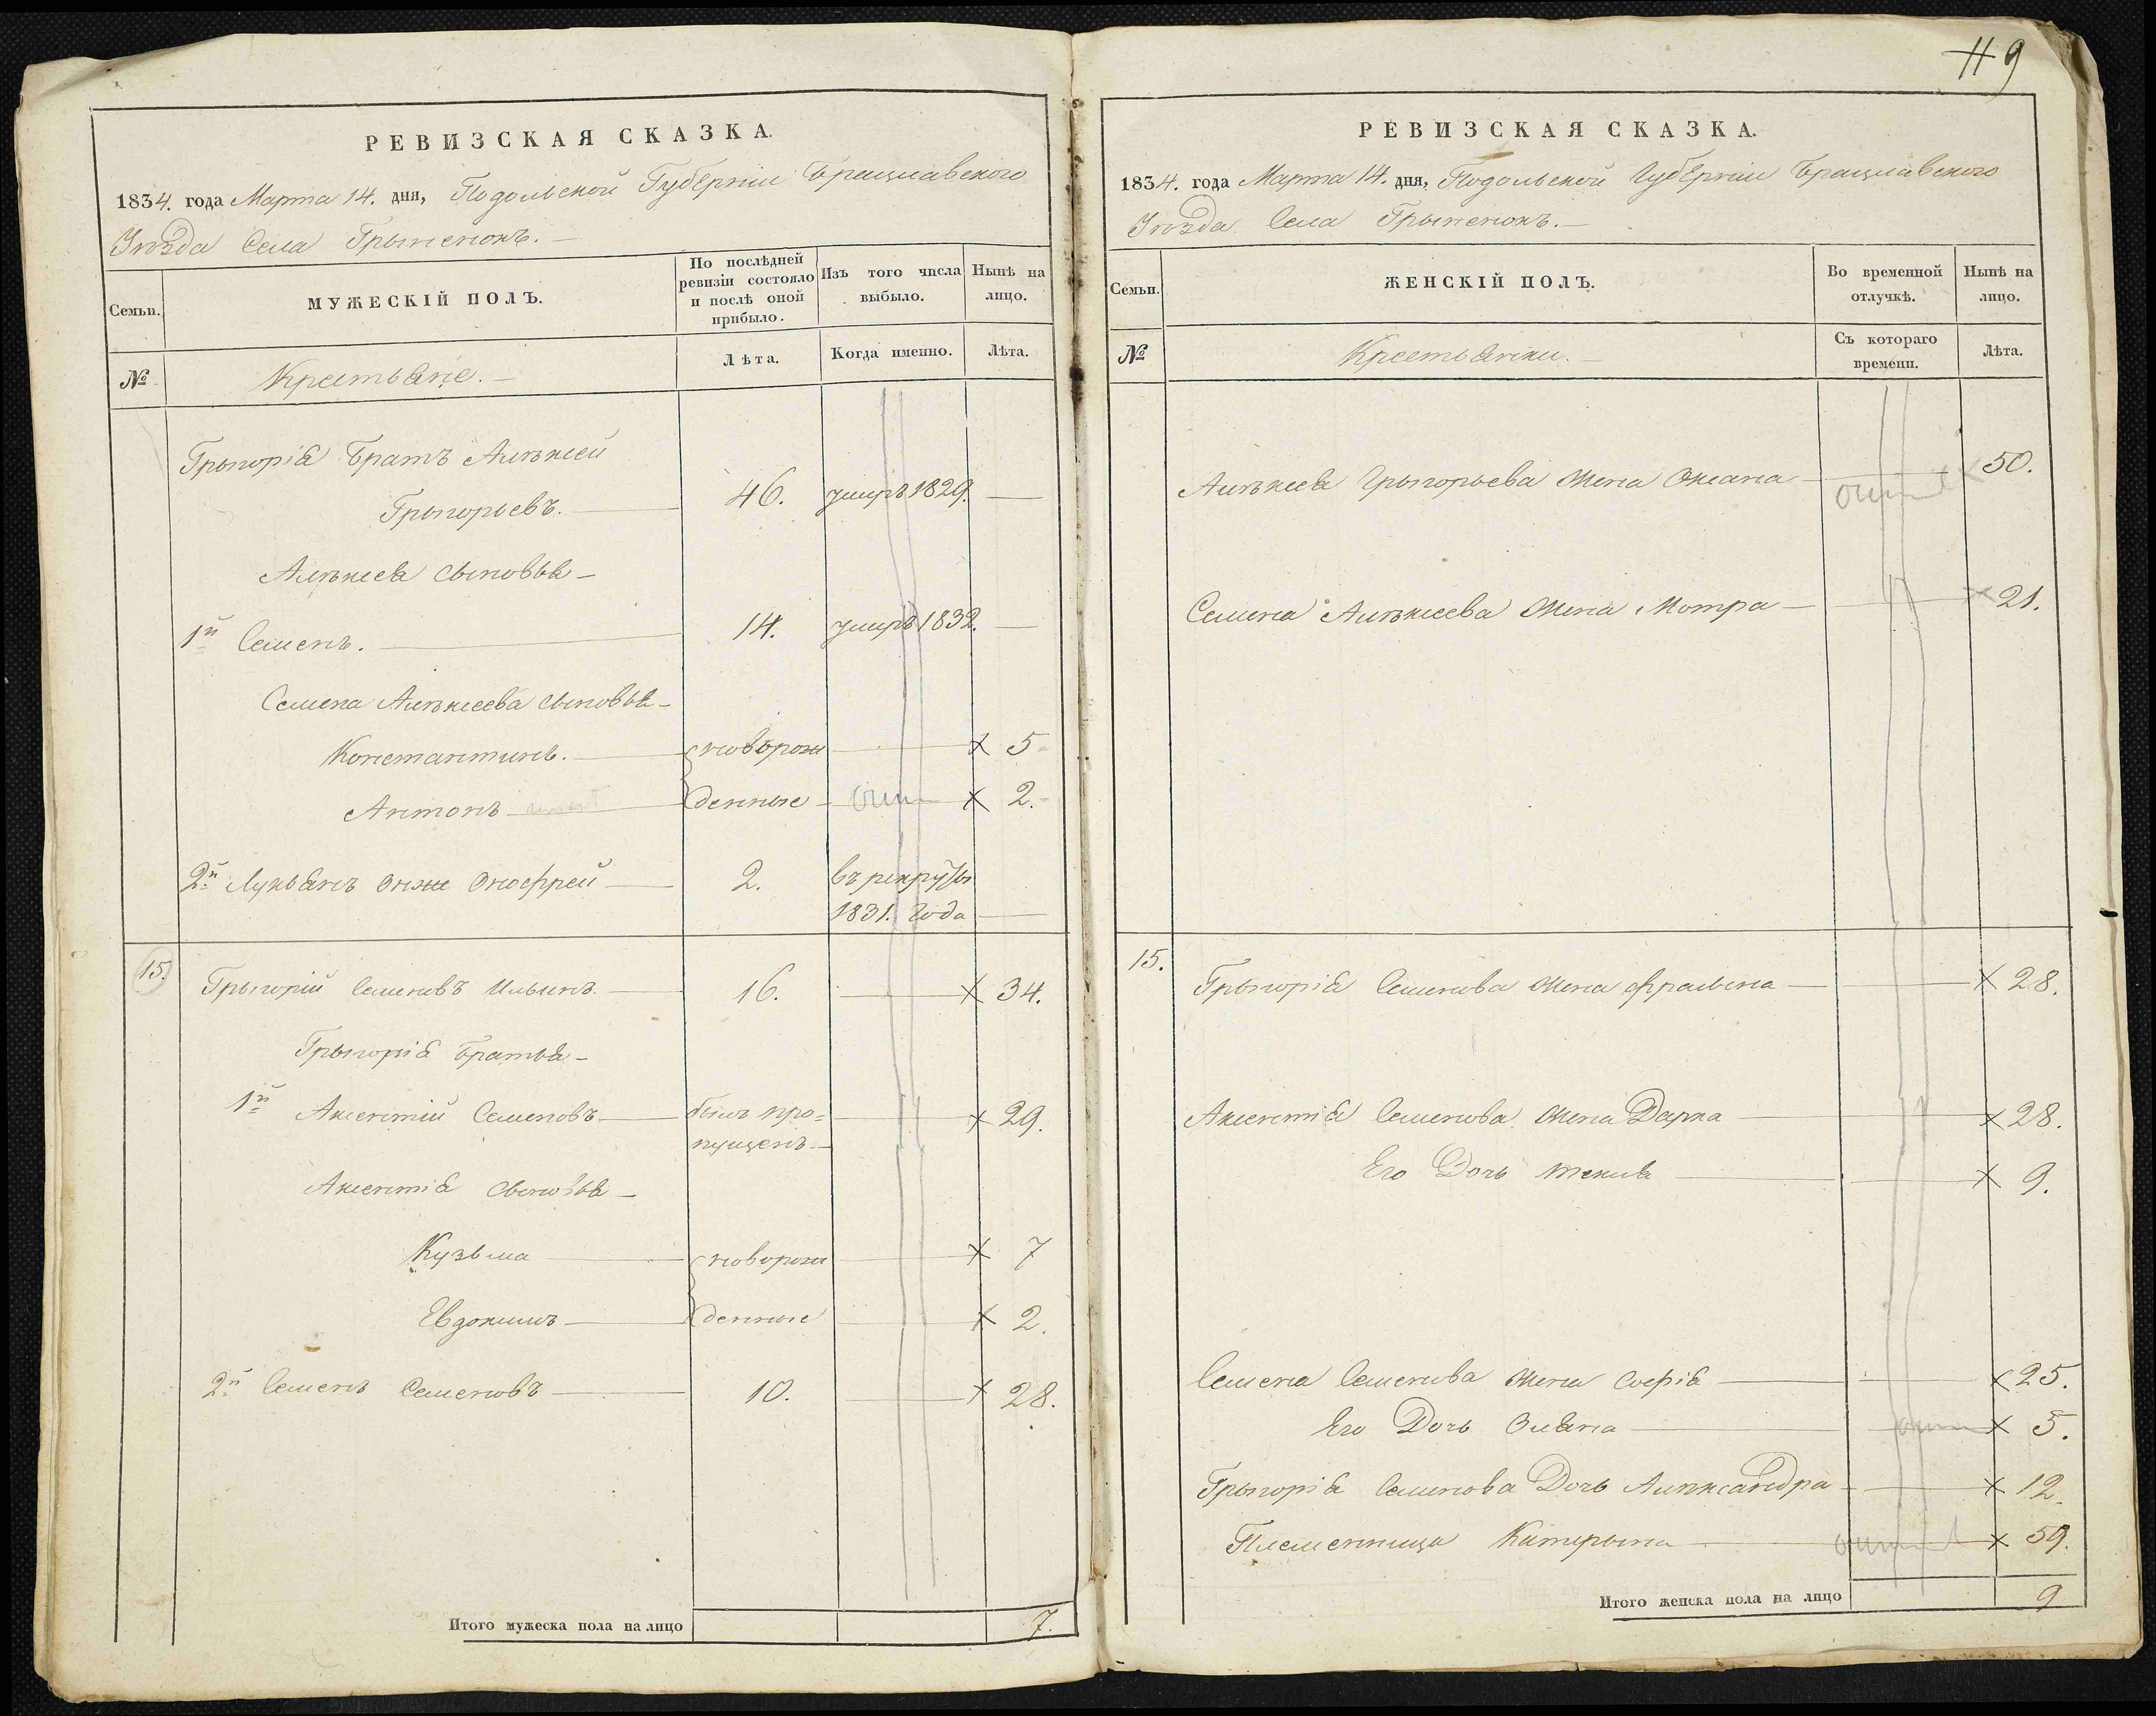 РЕВИЗСКАЯ СКАЗКА.
1834. года Марта 14. дня, Подольской Губерніи Брацлавского
Уѣзда Села Грыненокъ.
Семьи.
МУЖЕСКІЙ ПОЛЪ.
По послѣдней ревизіи состояло и послѣ оной прибыло.
Изъ того числа выбыло.
Нынѣ на лицо.
№
Крестьяне.
Лѣта.
Когда именно.
Лѣта.
Грыгорія Братъ Алѣксей
Грыгорьевъ. 46. умеръ 1829.
Алѣксея сыновья
1й Семенъ. 14. умеръ 1832.
Семена Алѣксеева сыновья
Константинъ. новорож х 5
Антонъ денные х 2.
2й Лукьянъ онже Онофрей 2. въ рекруты
1831. года
15. Грыгорій Семеновъ Ильинъ. 16. х 34.
Грыгорія Братья
1й Аксентій Семеновъ былъ про= х 29.
пущенъ
Аксентія сыновья
Кузьма новорож х 7
Евдокимъ денные х 2.
2й Семенъ Семеновъ 10. х 28.
Итого мужеска пола на лицо 7.
119
РЕВИЗСКАЯ СКАЗКА.
1834. года Марта 14. дня, Подольской Губерніи Брацлавского
Уѣзда Села Грыненокъ.
Семьи.
ЖЕНСКІЙ ПОЛЪ.
Во временной отлучкѣ.
Нынѣ на лицо.
№
Крестьянки.
Съ котораго времени.
Лѣта.
Алѣксея Грыгорьева жена Оксана х 50.
Семена Алѣксеева жена Мотра х 21.
15. Грыгорія Семенова жена Фросына х 28.
Аксентія Семенова жена Дарка х 28.
Его Дочь Текля х 9.
Семена Семенова жена Софія х 25.
Его Дочь Оляна х 5.
Грыгорія Семенова Дочь Алѣксандра х 12.
Племенница Катерына х 59.
Итого женска пола на лицо 9